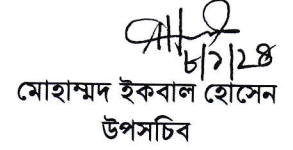 ৮/১/২৪
মোহাম্মদ ইকবাল হোসেন
উপসচিব